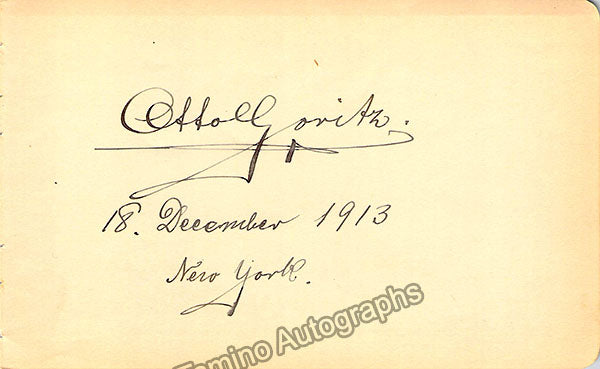 Otto Goritz.
18. December 1913
New York.
Tamino Autographs